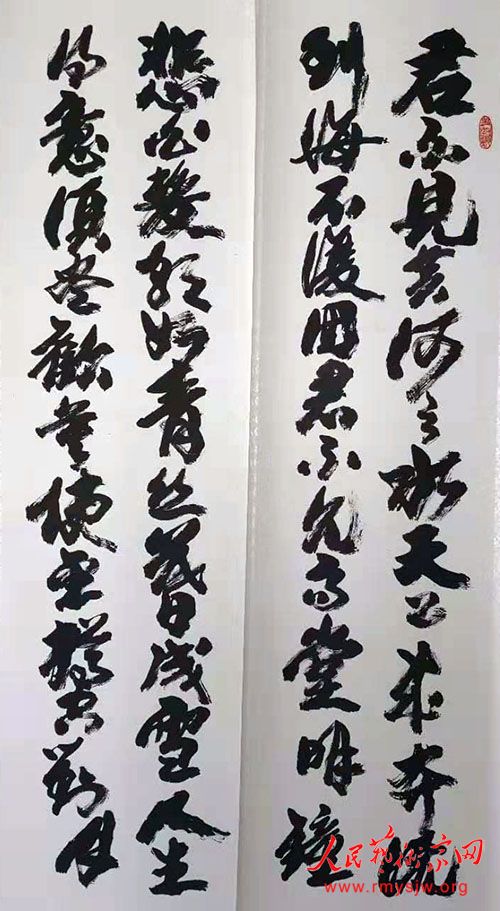 君不見黄河之水天上来奔流
到海不復回君不見高堂明鏡
悲白髮朝如青丝暮成雪人生
得意須尽歡莫使金樽空對月
人民藝術家网
www.rmysjw.org